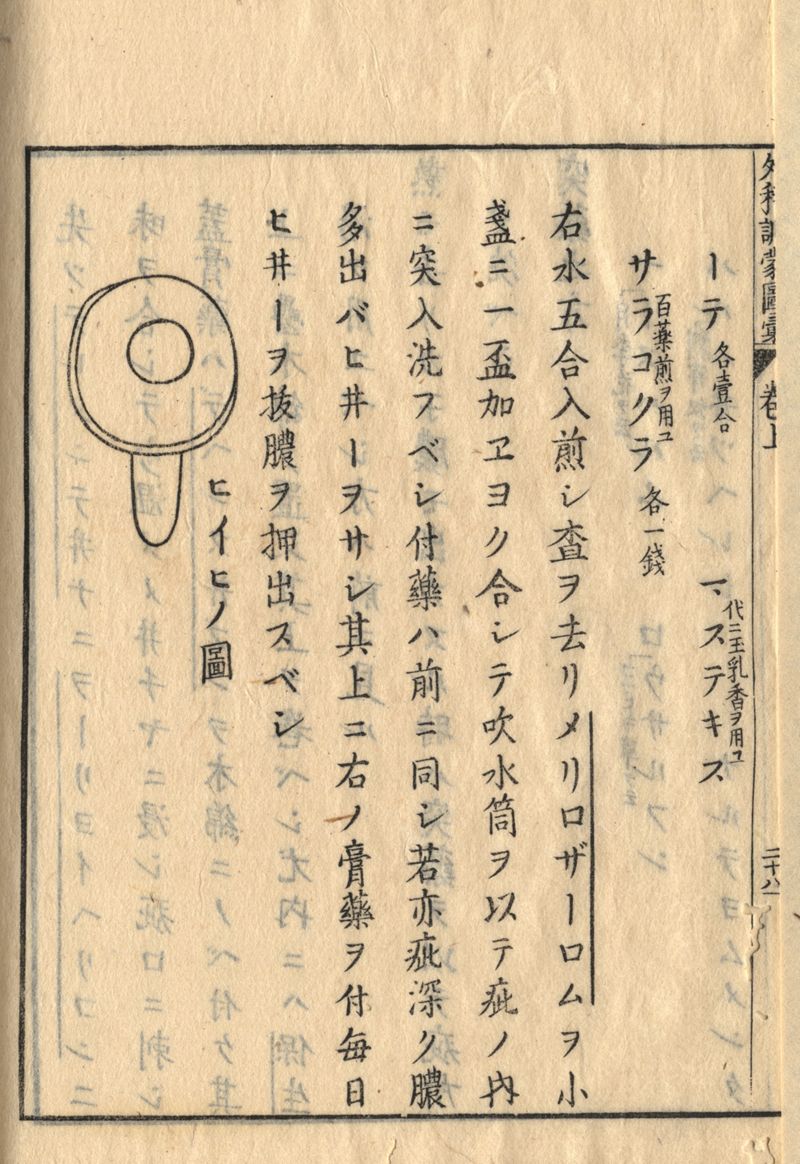 外科訓蒙圖彙 卷上 二十八
ーテ 各壹合 マステキス 代ニ玉乳香ヲ用ユ
サラコクラ 百藥煎ヲ用ユ 各一錢
右水五合入煎シ査ヲ去リメリロザーロムヲ小
盞ニ一盃加ヱヨク合シテ吹水筒ヲ以テ疵ノ内
ニ突入洗フベシ付藥ハ前ニ同シ若亦疵深ク膿
多出バヒ井ーヲサシ其上ニ右ノ膏藥ヲ付毎日
ヒ井ーヲ抜膿ヲ押出スベシ
ヒイヒノ圖